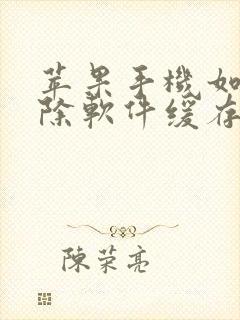 苹果手機如
除軟件缓存
陳荣亮